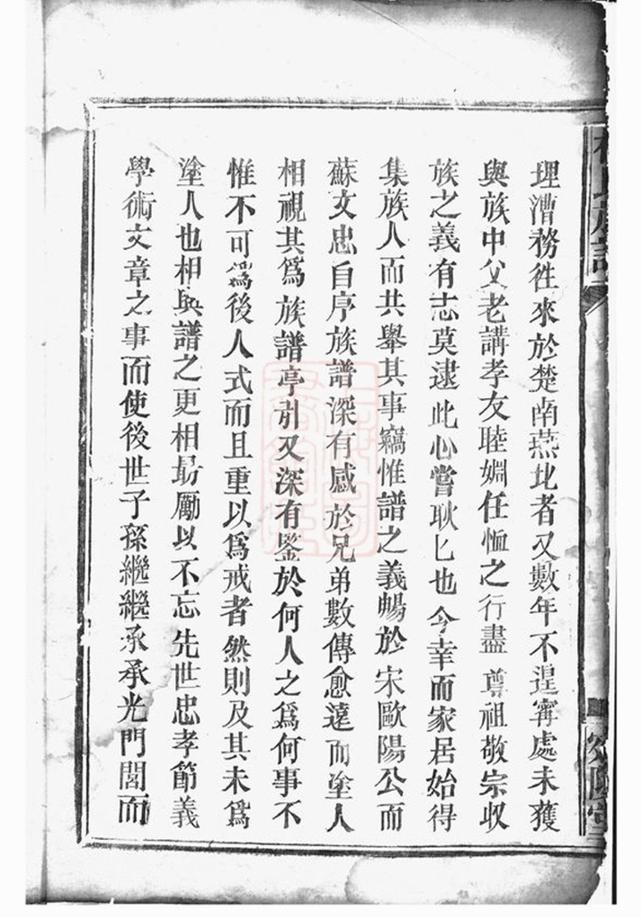 理漕務徃來於楚南燕北者又數年不遑寧處未獲
與族中父老講孝友睦婣任恤之行盡尊祖敬宗收
族之義有志莫逮此心嘗耿匕也今幸而家居始得
集族人而共舉其事竊惟譜之義暢於宋歐陽公而
蘇文忠自序族譜深有感於兄弟數傳愈遠而塗人
相視其爲族譜亭引又深有鑒於何人之爲何事不
惟不可爲後人式而且重以爲戒者然則及其未爲
塗人也相與譜之更相勗勵以不忘先世忠孝節義
學術文章之事而使後世子孫繼繼承承光門閭而